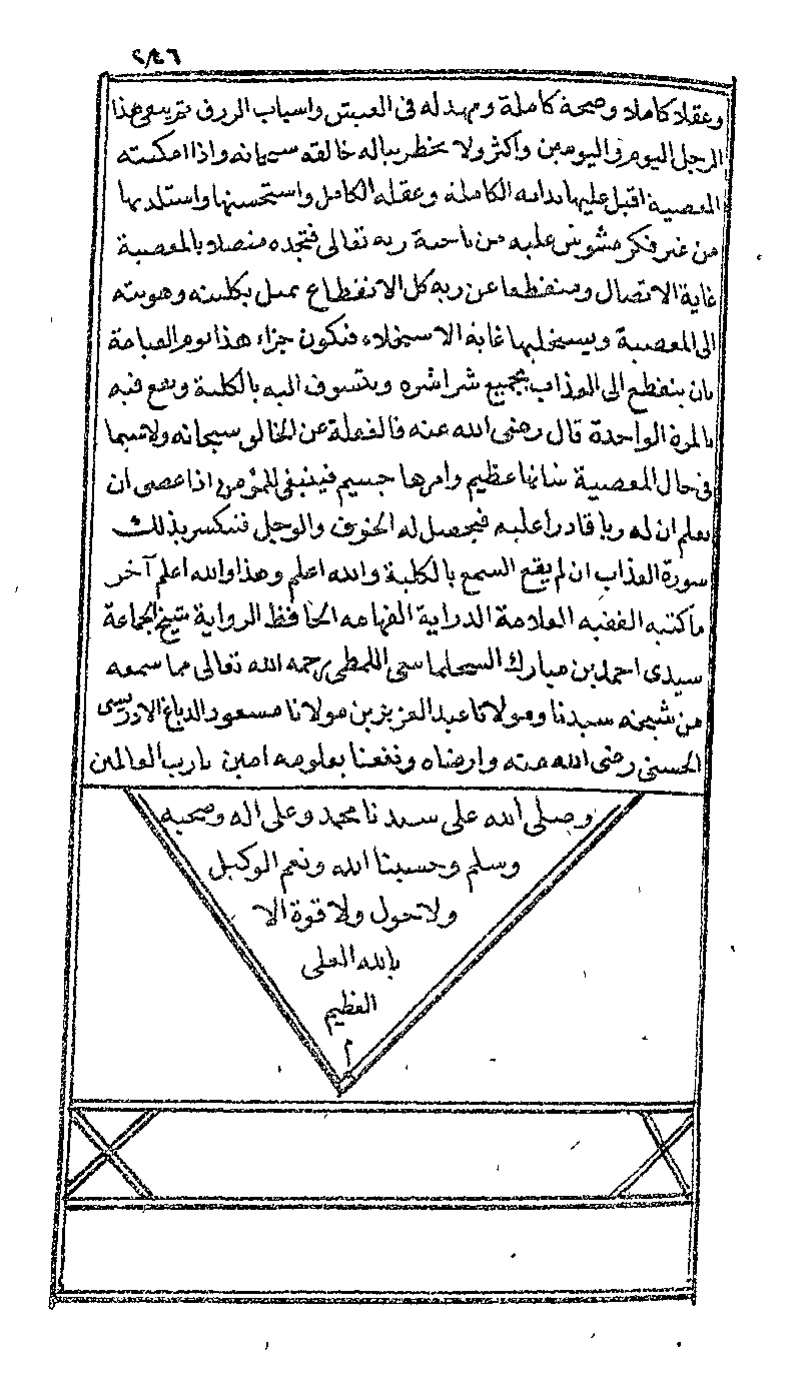 ٢٤٦
وعقلا كاملا وصحة كاملة ومهد له في العيش واسباب الرزق ثم يبقى هذا
الرجل اليوم واليومين واكثر ولا يخطر بباله خالقه سبحانه واذا امكنته
المعصية اقبل عليها بذاته الكاملة وعقله الكامل واستحسنها واستلذ بها
من غير فكر مشوش عليه من ناحية ربه تعالى فتجده متصلا بالمعصية
غاية الاتصال ومنقطعا عن ربه كل الانقطاع يميل بكليته وهويته
الى المعصية ويستحليها غاية الاستحلاء فتكون جزاء هذا يوم القيامة
بان ينقطع الى العذاب بجميع شراشره ويتسوف اليه بالكلية ويقع فيه
بالمرة الواحدة قال رضى الله عنه فالغفلة عن الخالق سبحانه ولا سيما
في حال المعصية شانها عظيم وامرها جسيم فينبغى للمؤمن اذا عصى ان
يعلم ان له ربا قادرا عليه فيحصل له الخوف والوجل فتنكسر بذلك
سورة العذاب ان لم يقع السمع بالكلية والله اعلم وهذا والله اعلم آخر
ما كتبه الفقيه العلامة الدراية الفهامه الحافظ الرواية شيخ الجماعة
سيدى احمد بن مبارك السجلماسى اللمطى رحمه الله تعالى مما سمعه
من شيخه سيدنا ومولانا عبد العزيز بن مولانا مسعود الدباغ الادريسى
الحسنى رضى الله عنه وارضاه ونفعنا بعلومه امين يارب العالمين
وصلى الله على سيدنا محمد وعلى اله وصحبه
وسلم وحسبنا الله ونعم الوكيل
ولا حول ولا قوة الا
بالله العلى
العظيم
م